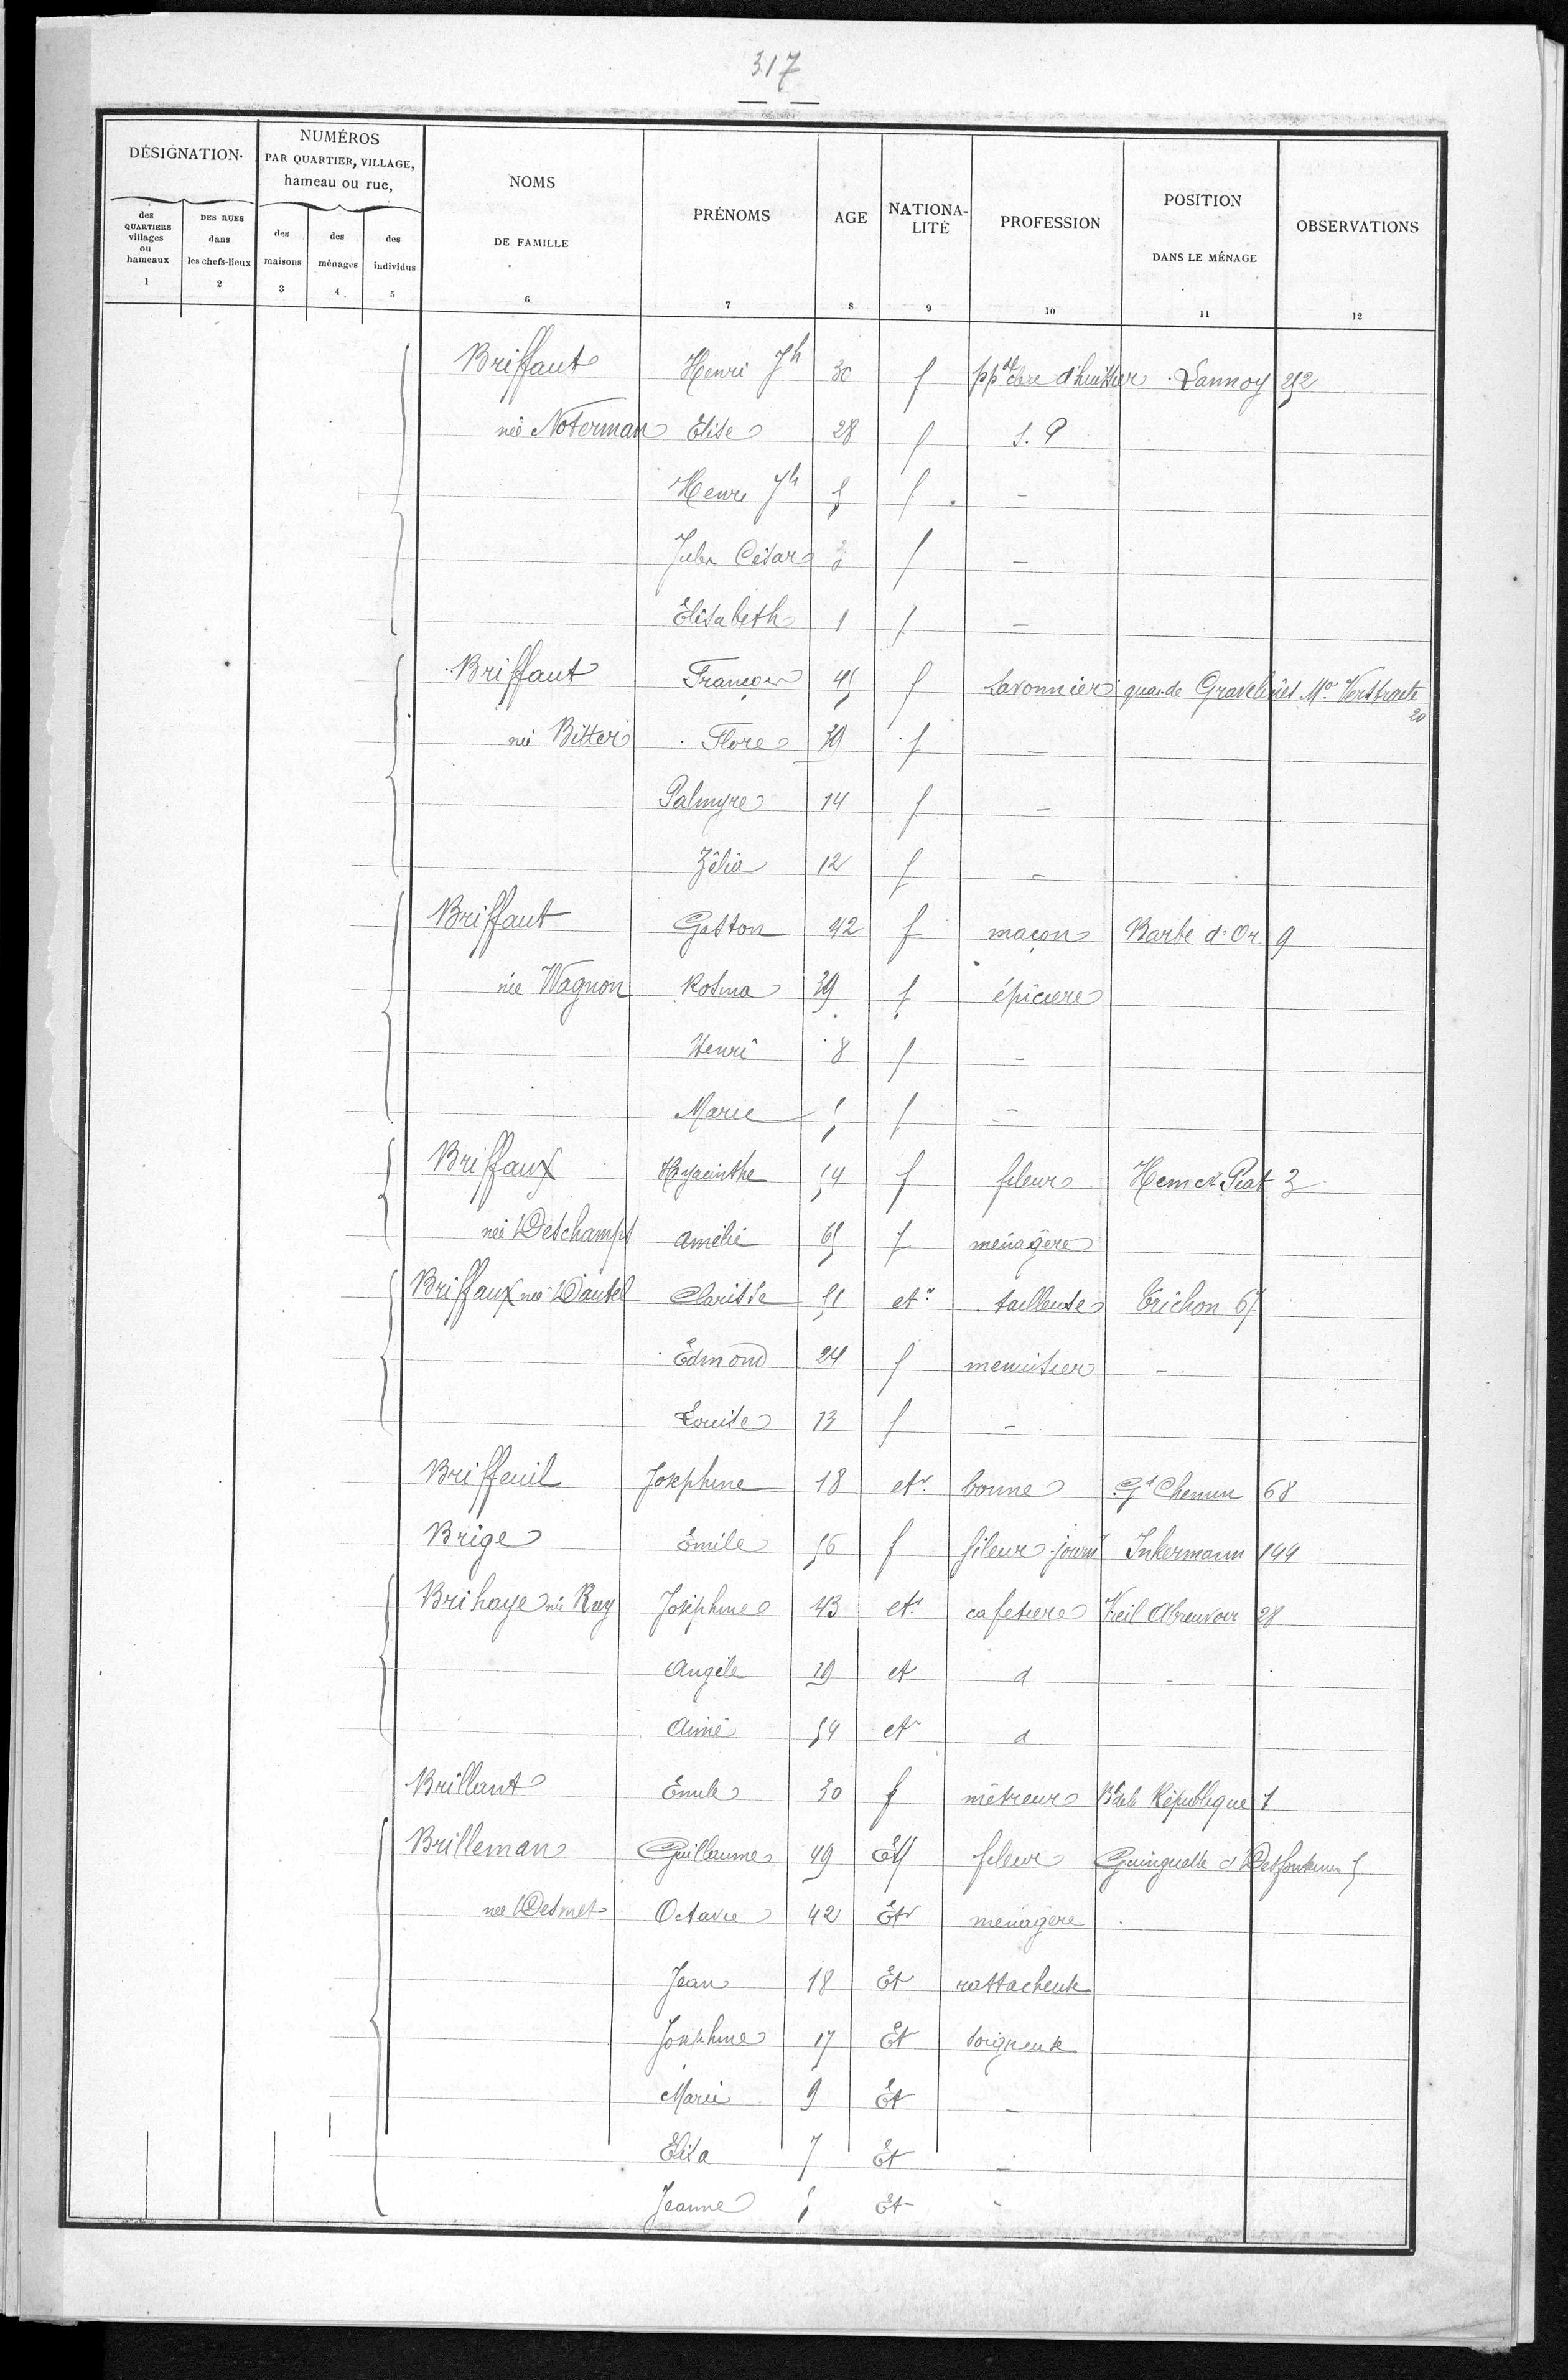 317
DÉSIGNATION.
NUMÉROS
PAR QUARTIER, VILLAGE,
hameau ou rue,
NOMS
DE FAMILLE
PRÉNOMS
AGE
NATIONA-
LITÉ
PROFESSION
POSITION
DANS LE MÉNAGE
OBSERVATIONS
des
QUARTIERS
villages
ou
hameaux
DES RUES
dans
les chefs-lieux
des
maisons
des
ménages
des
individus
1 2 3 4 5 6 7 8 9 10 11 12
Briffaut Henri Jh 30 f d'huissier Lannoy 252
née Noterman Elise 28 f S. P
Henri Jh 5 f -
Jules César 3 f -
Elisabeth 1 f -
Briffaut François 45 f savonnier quai de Gravelines Mon Verstraete
20
née Bitter Flore 39 f -
Palmyre 14 f -
Zélia 12 f -
Briffaut Gaston 42 f maçon Barbe d'Or 9
née Wagnon Rosina 39 f épicière
Henri 8 f -
Marie 5 f -
Briffaux Hyacinthe 54 f fileur Hem ct Piat 3
née Deschamps Amélie 65 f ménagère
Briffaux née Dautel Clarisse 51 etr tailleuse Trichon 67
Edmond 24 f menuisier -
Louise 13 f -
Briffeuil Joséphine 18 etr bonne Gd Chemin 68
Brige Emile 56 f fileur journr Inkermann 144
Brihaye née Ruy Joséphine 43 etr cafetière Vieil Abreuvoir 28
Angèle 19 et d -
Aimé 54 etr d
Brillant Emile 30 f métreur Bd de la République 7
Brilleman Guillaume 49 Etr fileur Guinguette ct Desfontaines 5
née Desmet Octavie 42 Etr ménagère
Jean 18 Et rattacheur
Joséphine 17 Et soigneuse
Marie 9 Et -
Elisa 7 Et -
Jeanne 5 Et -